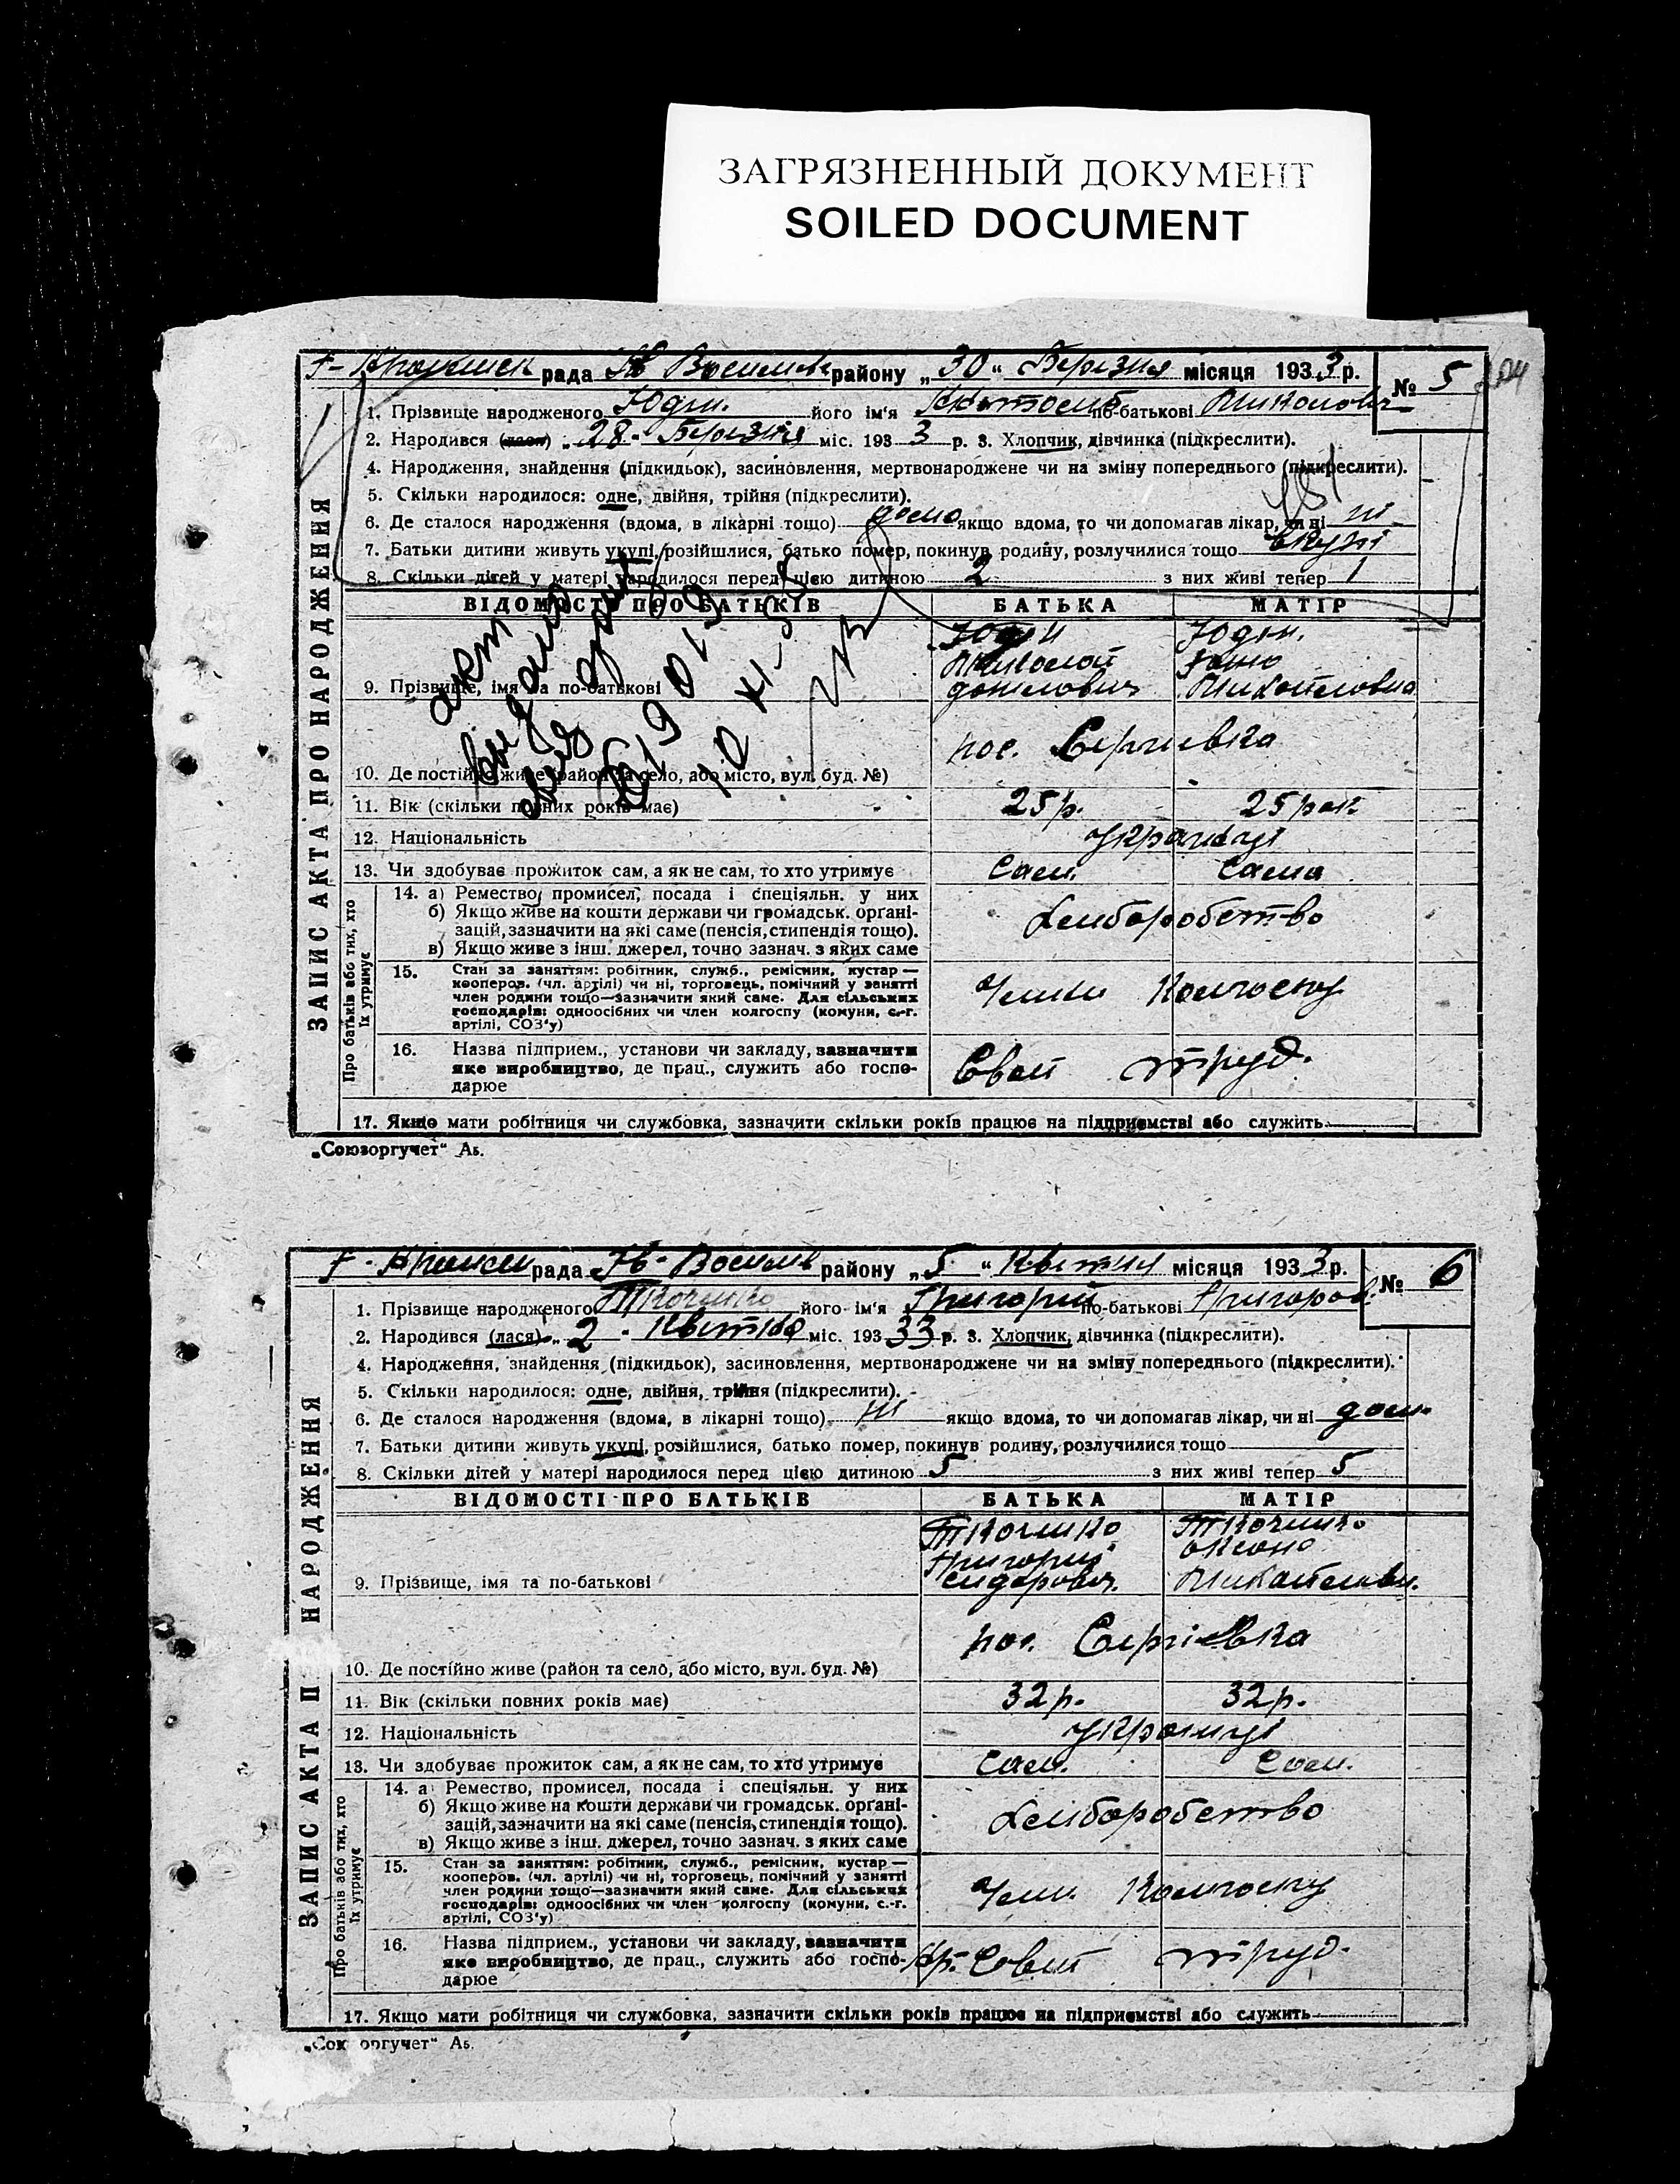 ЗАГРЯЗНЕННЫЙ ДОКУМЕНТ
SOILED DOCUMENT
рада Нв Василівк району „30“ Березня місяця 1933 р. № 5
1. Прізвище народженого Юдін. його ім'я по-батькові Миколович
2. Народився (лася) „28“ Березня міс. 1933 р. 3. Хлопчик, дівчинка (підкреслити).
4. Народження, знайдення (підкидьок), засиновлення, мертвонароджене чи на зміну попереднього (підкреслити).
5. Скільки народилося: одне, двійня, трійня (підкреслити).
6. Де сталося народження (вдома, в лікарні тощо) дома якщо вдома, то чи допомагав лікар, чи ні ні
7. Батьки дитини живуть укупі, розійшлися, батько помер, покинув родину, розлучилися тощо вкупі
8. Скільки дітей у матері народилося перед цією дитиною 2 з них живі тепер 1
ЗАПИС АКТА ПРО НАРОДЖЕННЯ
ВІДОМОСТІ ПРО БАТЬКІВ БАТЬКА МАТІР
Юдін Юдін.
Миколай
9. Прізвище, імя та по-батькові Михайловна
пос. Сергіевка
10. Де постійно живе (район та село, або місто, вул. буд. №)
11. Вік (скільки повних років має) 25р. 25рок
12. Національність Українці
13. Чи здобуває прожиток сам, а як не сам, то хто утримує Сам. Сама
Про батьків або тих, хто їх утримує
14. а) Ремество, промисел, посада і спеціяльн. у них
б) Якщо живе на кошти держави чи громадськ. органі-
зацій, зазначити на які саме (пенсія, стипендія тощо).
в) Якщо живе з інш. джерел, точно зазнач. з яких саме
Хліборобство
15. Стан за заняттям: робітник, служб., ремісник, кустар—
кооперов. (чл. артілі) чи ні, торговець, помічний у занятті
член родини тощо—зазначити який саме. Для сільських
господарів: одноосібних чи член колгоспу (комуни, с.-г.
артілі, СОЗ'у)
Члини Колгоспу
16. Назва підприєм., установи чи закладу, зазначити
яке виробництво, де прац., служить або госпо-
дарює
Свой труд.
17. Якщо мати робітниця чи службовка, зазначити скільки років працює на підприємстві або служить
„Союзоргучет“ Аь.
акт
10 XI-58
рада Нв- Василів району „5“ Квітня місяця 1933 р. № 6
1. Прізвище народженого Ткаченко його ім'я Григорій по-батькові Григоров.
2. Народився (лася) „2“ Квітня міс. 19333 р. 3. Хлопчик, дівчинка (підкреслити).
4. Народження, знайдення (підкидьок), засиновлення, мертвонароджене чи на зміну попереднього (підкреслити).
5. Скільки народилося: одне, двійня, трійня (підкреслити).
6. Де сталося народження (вдома, в лікарні тощо) ні якщо вдома, то чи допомагав лікар, чи ні дом.
7. Батьки дитини живуть укупі, розійшлися, батько помер, покинув родину, розлучилися тощо
8. Скільки дітей у матері народилося перед цією дитиною 5 з них живі тепер 5
ЗАПИС АКТА П НАРОДЖЕННЯ
ВІДОМОСТІ ПРО БАТЬКІВ БАТЬКА МАТІР
Ткаченко Ткаченко
Григорій Оксана
9. Прізвище, імя та по-батькові Сидорович. Михайловн.
пос. Сергіевка
10. Де постійно живе (район та село, або місто, вул. буд. №)
11. Вік (скільки повних років має) 32р. 32р.
12. Національність Українці
13. Чи здобуває прожиток сам, а як не сам, то хто утримує Сам. Сам.
Про батьків або тих, хто їх утримує
14. а Ремество, промисел, посада і спеціяльн. у них
б) Якщо живе на кошти держави чи громадськ. органі-
зацій, зазначити на які саме (пенсія, стипендія тощо).
в) Якщо живе з інш. джерел, точно зазнач. з яких саме
Хліборобство
15. Стан за заняттям: робітник, служб., ремісник, кустар—
кооперов. (чл. артілі) чи ні, торговець, помічний у занятті
член родини тощо—зазначити який саме. Для сільських
господарів: одноосібних чи член колгоспу (комуни, с.-г.
артілі, СОЗ'у)
Член. Колгоспу
16. Назва підприєм., установи чи закладу, зазначити
яке виробництво, де прац., служить або госпо-
дарює
Свій труд.
17. Якщо мати робітниця чи службовка, зазначити скільки років працює на підприємстві або служить
„Сок оргучет“ Аь.